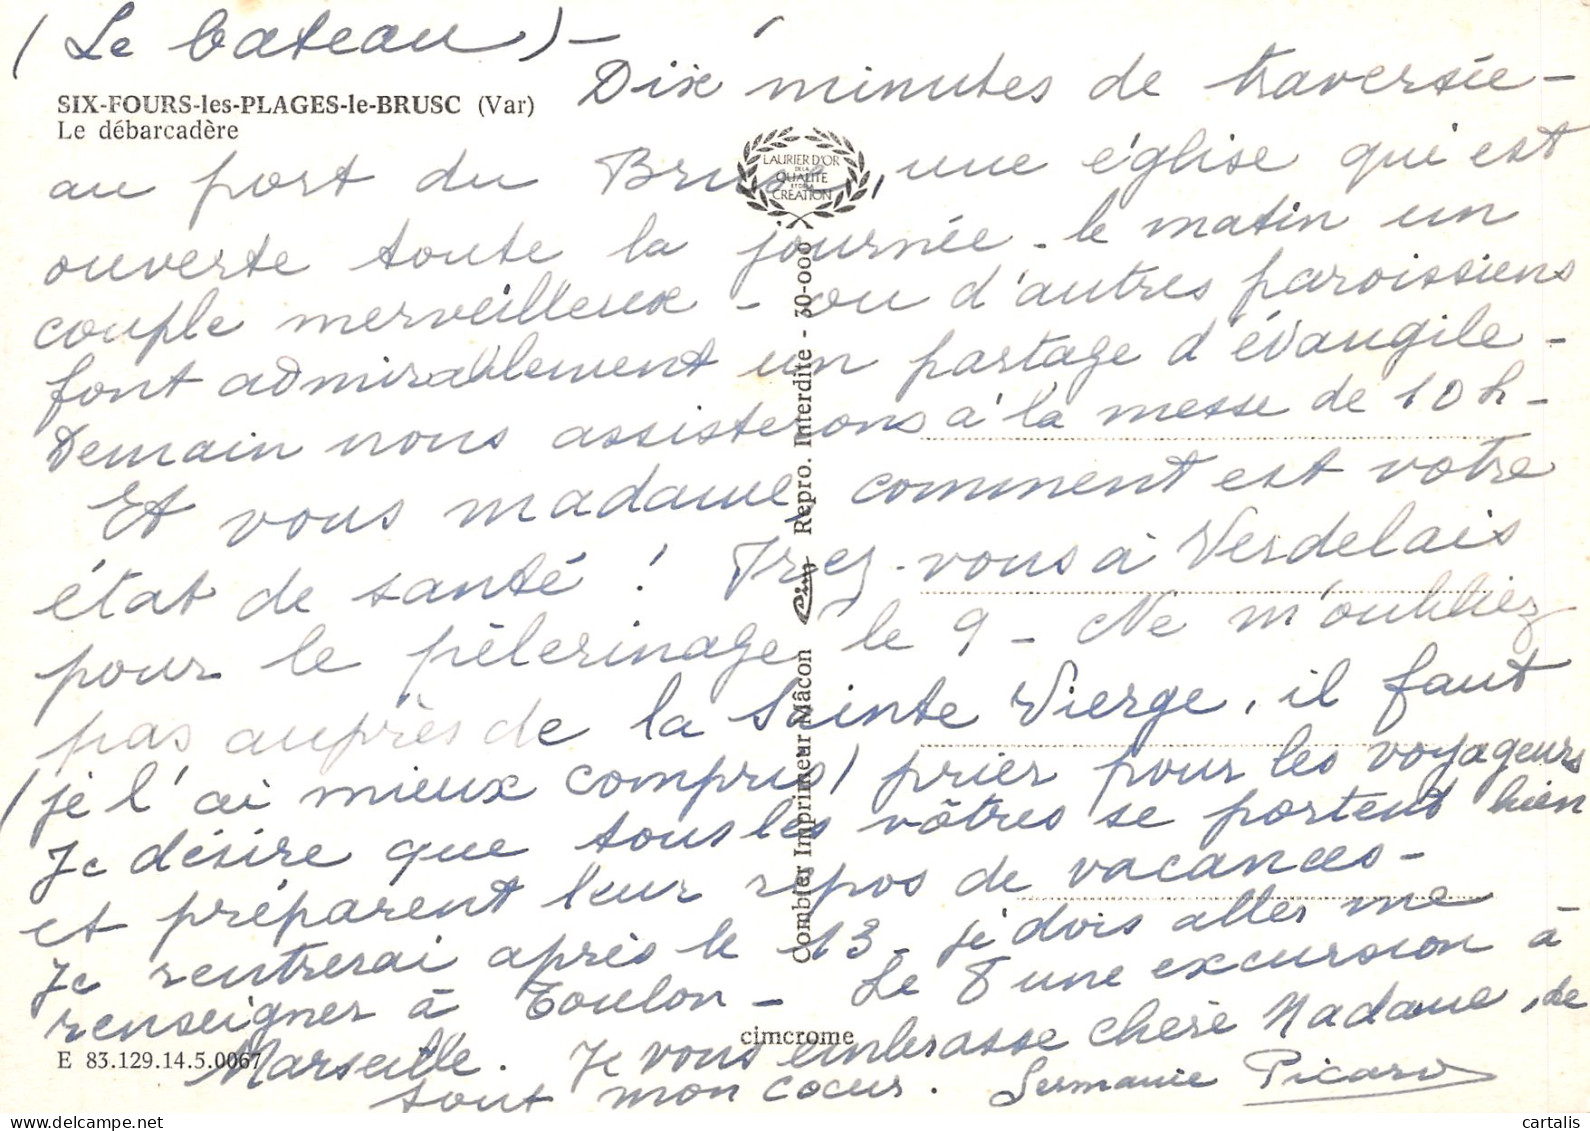 (Le bateau) -
Dix minutes de traversée -
SIX-FOURS-les-PLAGES-le-BRUSC (Var)
Le débarcadère
LAURIER D'OR
DE LA
QUALITE
ET DE LA
CREATION
au port du Brusc, une église qui est
ouverte toute la journée - le matin un
couple merveilleux - ou d'autres paroissiens
font admirablement un partage d'évangile -
Demain nous assisterons à la messe de 10h -
Et vous madame, comment est votre
état de santé ! Irez-vous à Verdelais
pour le pèlerinage le 9 - Ne m'oubliez
pas auprès de la Sainte Vierge, il faut
(je l'ai mieux compris) prier pour les voyageurs
Je désire que tous les vôtres se portent bien
et préparent leur repos de vacances -
Je rentrerai après le 13 - je dois aller me
renseigner à Toulon - Le 8 une excursion à -
Marseille. Je vous embrasse chère Madame, de
tout mon coeur. Germaine Picard
cimcrome
E 83.129.14.5.0067
Combier Imprimeur Mâcon Cim Repro. Interdite - 30-000
cartalis